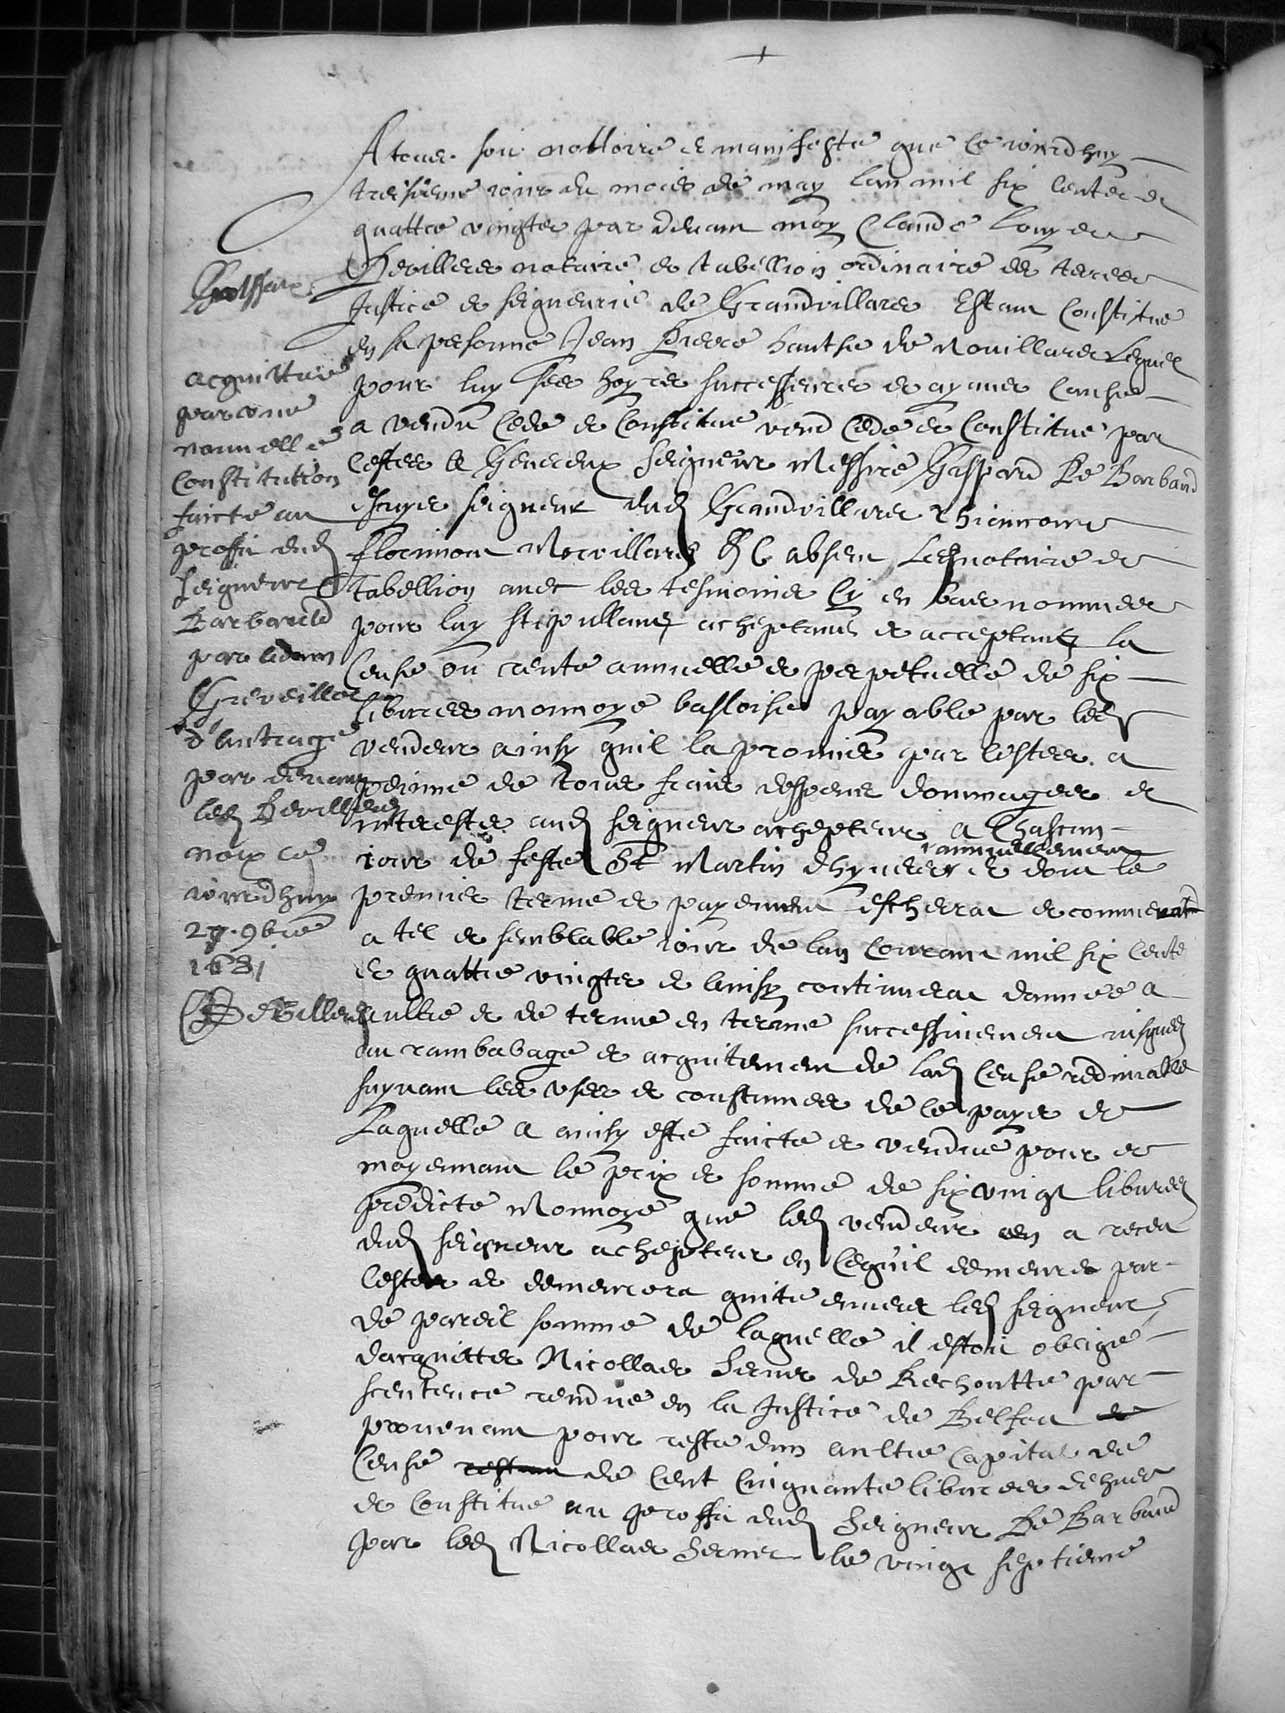 A tous soit nottoire et manifeste que ce iourdhuy
treisieme iour du mois de may lan mil six cents et
quattre vingts par devant moy Claude Louys
Devillers notaire et tabellion ordinaire es terres
Justice et seigneurie de Grandvillars Estant Constitue
en sa personne Jean Pierre de Novillard Lequel
pour luy ses hoyrs successeurs et ayans cause
a vendu Cede et Constitue vend Cede et Constitue par
cestes a Genereux Seigneur Messire Gaspard De Barbaud
escuyer seigneur dud Grandvillars Thiencourt
florimont Morvillars &c absent Led notaire et
tabellion avec les tesmoins cy en bas nommes
pour luy stipullans acheptans et acceptans La
Cense ou rente annuelle et perpetuelle de six
libvres monnoye basloise payable par led
vendeur ainsy quil la promis par cestes a
peinne de tous frais despens dommages et
interestes aud seigneur achepteur a Chascun
iour de feste St Martin dhyvers annuellement et dont le
premier terme et payement escherrat et commencerat
a tel et semblable iour de lan Courant mil six Cents
et quattre vingts et ainsy continuerat dannee a
aultre et de terme en terme successivement iusques
au rambabage et acquitement de lad Cense redimable
suyvant les uses et coustumes de ce pays et
Laquelle a ainsy este faicte et vendue pour et
moyennant le prix et somme de six vingt libvres
predicte Monnoye que led vendeur en a receu
dud seigneur achepteur en ce quil demeure par
cestes et demeurera quitte envers led seigneur
de pareil somme de laquelle il estoit oblige
dacquitter Nicollas de Rechoutte par
scentence rendue en la Justice de Belfort
provenant pour reste dun aultre Capital de
Cense de Cent Cinquante libvres
et Constitue au proffit dud Seigneur De Barbaud
par led Nicollas le vingt septieme

acquitture
par une
nouvelle
Constitution
faicte au
proffit dud
Seigneur
Barbauld
par adam
Greveillot
d'antrage
par devant
led Devillers
noix ce
iourdhuy
27. 9bre
1681
Devillers